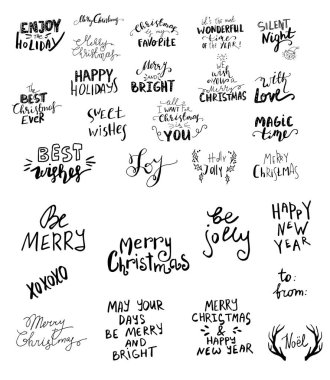 ENJOY
the
HOLIDAY
Merry Christmas
Merry
Christmas
Christmas
is my
FAVORITE
it's the most
WONDERFUL
time
OF THE YEAR!
SILENT
Night
The
BEST
Christmas
EVER
HAPPY
HOLIDAYS
Merry
AND
BRIGHT
WE
wish
YOU A
MERRY
CHRISTMAS
with
Love
sweet
wishes
all
I WANT
FOR
Christmas
is
YOU
MAGIC
time
BEST
wishes
Joy
Holly
Jolly
MERRY
CHRISTMAS
Be
MERRY
Merry
Christmas
be
jolly
HAPPY
NEW
YEAR
XOXOXO
to:
from:
Merry
Christmas
MAY YOUR
DAYS
BE MERRY
AND
BRIGHT
MERRY
CHRISTMAS
&
HAPPY
NEW YEAR
Noël